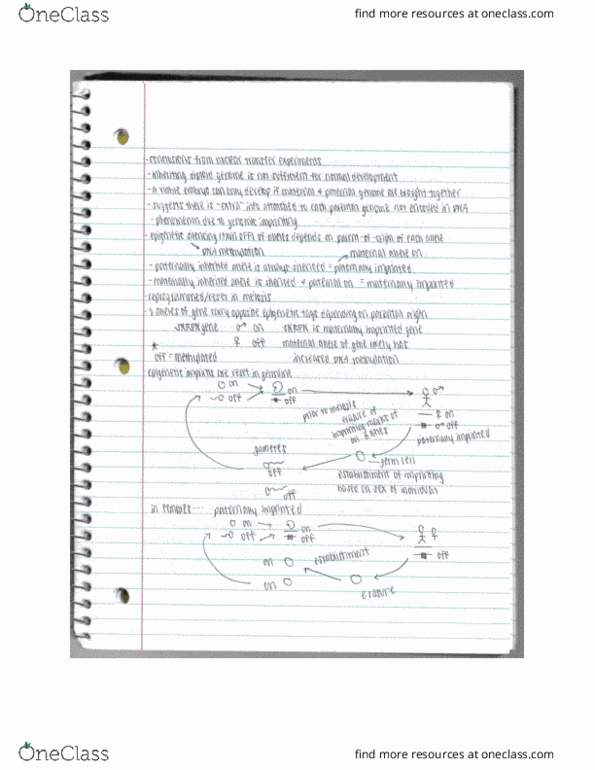 OneClass
find more resources at oneclass.com
- conclusions from nuclear transfer experiments
- inheriting diploid genome is not sufficient for normal development
- a viable embryo can only develop if maternal + paternal genome are brought together
- suggests there is "extra" info attached to each parental genome not encoded in DNA
- phenomenon due to genomic imprinting
- epigenetic silencing (turn off) of alleles depends on parent-of-origin of each allele
DNA methylation
maternal allele on
- paternally inherited allele is always silenced = paternally imprinted
- maternally inherited allele is silenced + paternal on = maternally imprinted
- reprogrammed/reset in meiosis
- alleles of gene carry opposite epigenetic tags depending on parental origin
gene ♂ on is maternally imprinted gene
* ♀ off maternal allele of gene likely has
off = methylated increased DNA methylation
epigenetic imprints are reset in germline
on on ♂
off off
prior to meiosis
erasure of
imprinting marks of
♀ on
♂ off
paternally imprinted
gametes
off
germ cell
off
establishment of imprinting
based on sex of individual
in females... paternally imprinted
on on ♀
off off off
on establishment
on
erasure
OneClass
find more resources at oneclass.com